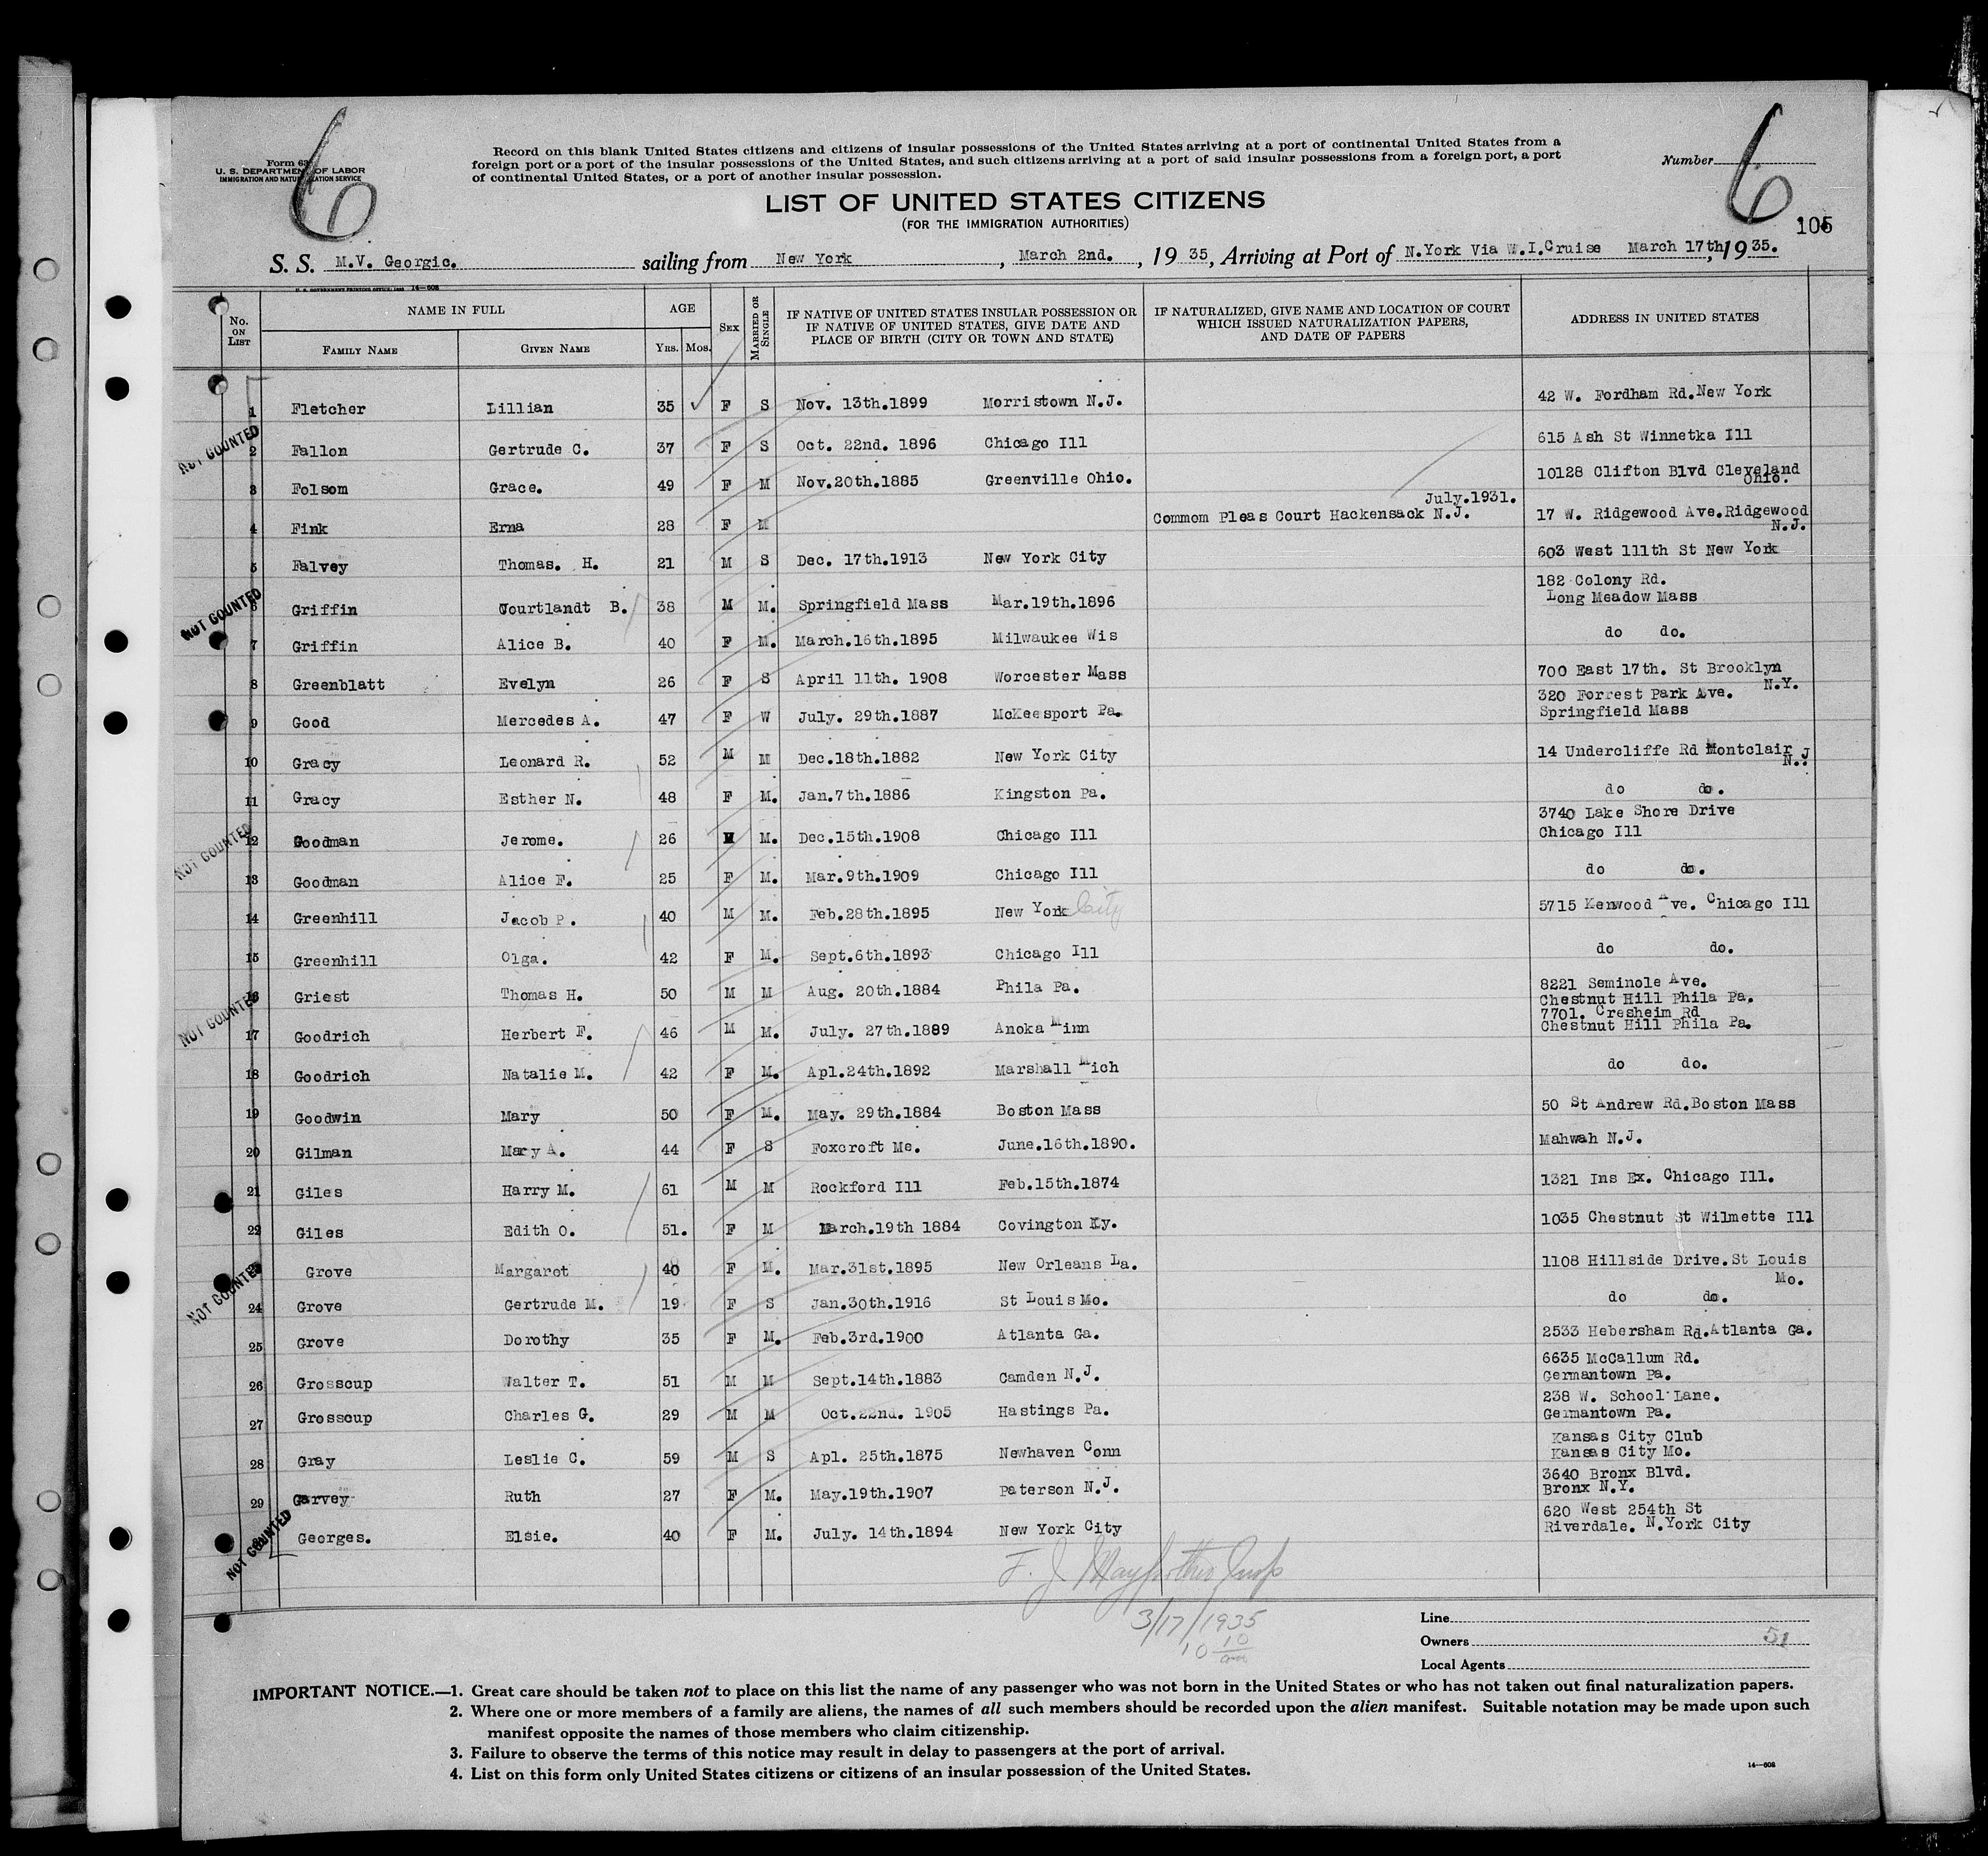 6
Form 63
U. S. DEPARTMENT OF LABOR
IMMIGRATION AND NATURALIZATION SERVICE
Record on this blank United States citizens and citizens of insular possessions of the United States arriving at a port of continental United States from a
foreign port or a port of the insular possessions of the United States, and such citizens arriving at a port of said insular possessions from a foreign port, a port
of continental United States, or a port of another insular possession.
Number 6
LIST OF UNITED STATES CITIZENS
(FOR THE IMMIGRATION AUTHORITIES)
105
S. S. M.V. Georgic. sailing from New York, March 2nd., 19 35, Arriving at Port of N.York Via W.I.Cruise March 17th, 19 35.
U. S. GOVERNMENT PRINTING OFFICE 14—608
No. ON LIST
NAME IN FULL
FAMILY NAME
GIVEN NAME
AGE
YRS. MOS.
SEX
MARRIED OR SINGLE
IF NATIVE OF UNITED STATES INSULAR POSSESSION OR
IF NATIVE OF UNITED STATES, GIVE DATE AND
PLACE OF BIRTH (CITY OR TOWN AND STATE)
IF NATURALIZED, GIVE NAME AND LOCATION OF COURT
WHICH ISSUED NATURALIZATION PAPERS,
AND DATE OF PAPERS
ADDRESS IN UNITED STATES
1 Fletcher Lillian 35 F S Nov. 13th.1899 Morristown N.J. 42 W. Fordham Rd.New York
NOT COUNTED
2 Fallon Gertrude C. 37 F S Oct. 22nd. 1896 Chicago Ill 615 Ash St Winnetka Ill
3 Folsom Grace. 49 F M Nov.20th.1885 Greenville Ohio. 10128 Clifton Blvd Cleveland
Ohio.
July.1931.
4 Fink Erna 28 F M Commom Pleas Court Hackensack N.J. 17 W. Ridgewood Ave.Ridgewood
N.J.
5 Falvey Thomas. H. 21 M S Dec. 17th.1913 New York City 603 West 111th St New York
182 Colony Rd.
NOT COUNTED
6 Griffin Courtlandt B. 38 M M. Springfield Mass Mar.19th.1896 Long Meadow Mass
7 Griffin Alice B. 40 F M. March.16th.1895 Milwaukee Wis do do.
8 Greenblatt Evelyn 26 F S April 11th. 1908 Worcester Mass 700 East 17th. St Brooklyn
N.Y.
320 Forrest Park Ave.
9 Good Mercedes A. 47 F W July. 29th.1887 McKeesport Pa. Springfield Mass
10 Gracy Leonard R. 52 M M Dec.18th.1882 New York City 14 Undercliffe Rd Montclair
N.J.
11 Gracy Esther N. 48 F M. Jan.7th.1886 Kingston Pa. do do.
3740 Lake Shore Drive
NOT COUNTED
12 Goodman Jerome. 26 M M. Dec.15th.1908 Chicago Ill Chicago Ill
13 Goodman Alice F. 25 F M. Mar.9th.1909 Chicago Ill do do.
14 Greenhill Jacob P. 40 M M. Feb.28th.1895 New York City 5715 Kenwood Ave. Chicago Ill
15 Greenhill Olga. 42 F M. Sept.6th.1893 Chicago Ill do do.
8221 Seminole Ave.
NOT COUNTED
16 Griest Thomas H. 50 M M Aug. 20th.1884 Phila Pa. Chestnut Hill Phila Pa.
7701. Cresheim Rd
17 Goodrich Herbert F. 46 M M. July. 27th.1889 Anoka Minn Chestnut Hill Phila Pa.
18 Goodrich Natalie M. 42 F M. Apl.24th.1892 Marshall Mich do do.
19 Goodwin Mary 50 F M. May. 29th.1884 Boston Mass 50 St Andrew Rd.Boston Mass
20 Gilman Mary A. 44 F S Foxcroft Me. June.16th.1890. Mahwah N.J.
21 Giles Harry M. 61 M M Rockford Ill Feb.15th.1874 1321 Ins Ex. Chicago Ill.
22 Giles Edith O. 51. F M March.19th 1884 Covington Ky. 1035 Chestnut St Wilmette Ill
NOT COUNTED
23 Grove Margaret 40 F M. Mar.31st.1895 New Orleans La. 1108 Hillside Drive.St Louis
Mo.
24 Grove Gertrude M. 19 F S Jan.30th.1916 St Louis Mo. do do.
25 Grove Dorothy 35 F M. Feb.3rd.1900 Atlanta Ga. 2533 Hebersham Rd.Atlanta Ga.
6635 McCallum Rd.
26 Grosscup Walter T. 51 M M Sept.14th.1883 Camden N.J. Germantown Pa.
238 W. School Lane.
27 Grosscup Charles G. 29 M M Oct.22nd. 1905 Hastings Pa. Germantown Pa.
Kansas City Club
28 Gray Leslie C. 59 M S Apl. 25th.1875 Newhaven Conn Kansas City Mo.
3640 Bronx Blvd.
29 Garvey Ruth 27 F M. May.19th.1907 Paterson N.J. Bronx N.Y.
620 West 254th St
NOT COUNTED
Georges. Elsie. 40 F M. July. 14th.1894 New York City Riverdale. N.York City
F. J.
3/17/1935
10 10
Line
Owners 51
Local Agents
IMPORTANT NOTICE.—1. Great care should be taken not to place on this list the name of any passenger who was not born in the United States or who has not taken out final naturalization papers.
2. Where one or more members of a family are aliens, the names of all such members should be recorded upon the alien manifest. Suitable notation may be made upon such
manifest opposite the names of those members who claim citizenship.
3. Failure to observe the terms of this notice may result in delay to passengers at the port of arrival.
4. List on this form only United States citizens or citizens of an insular possession of the United States.
14—608